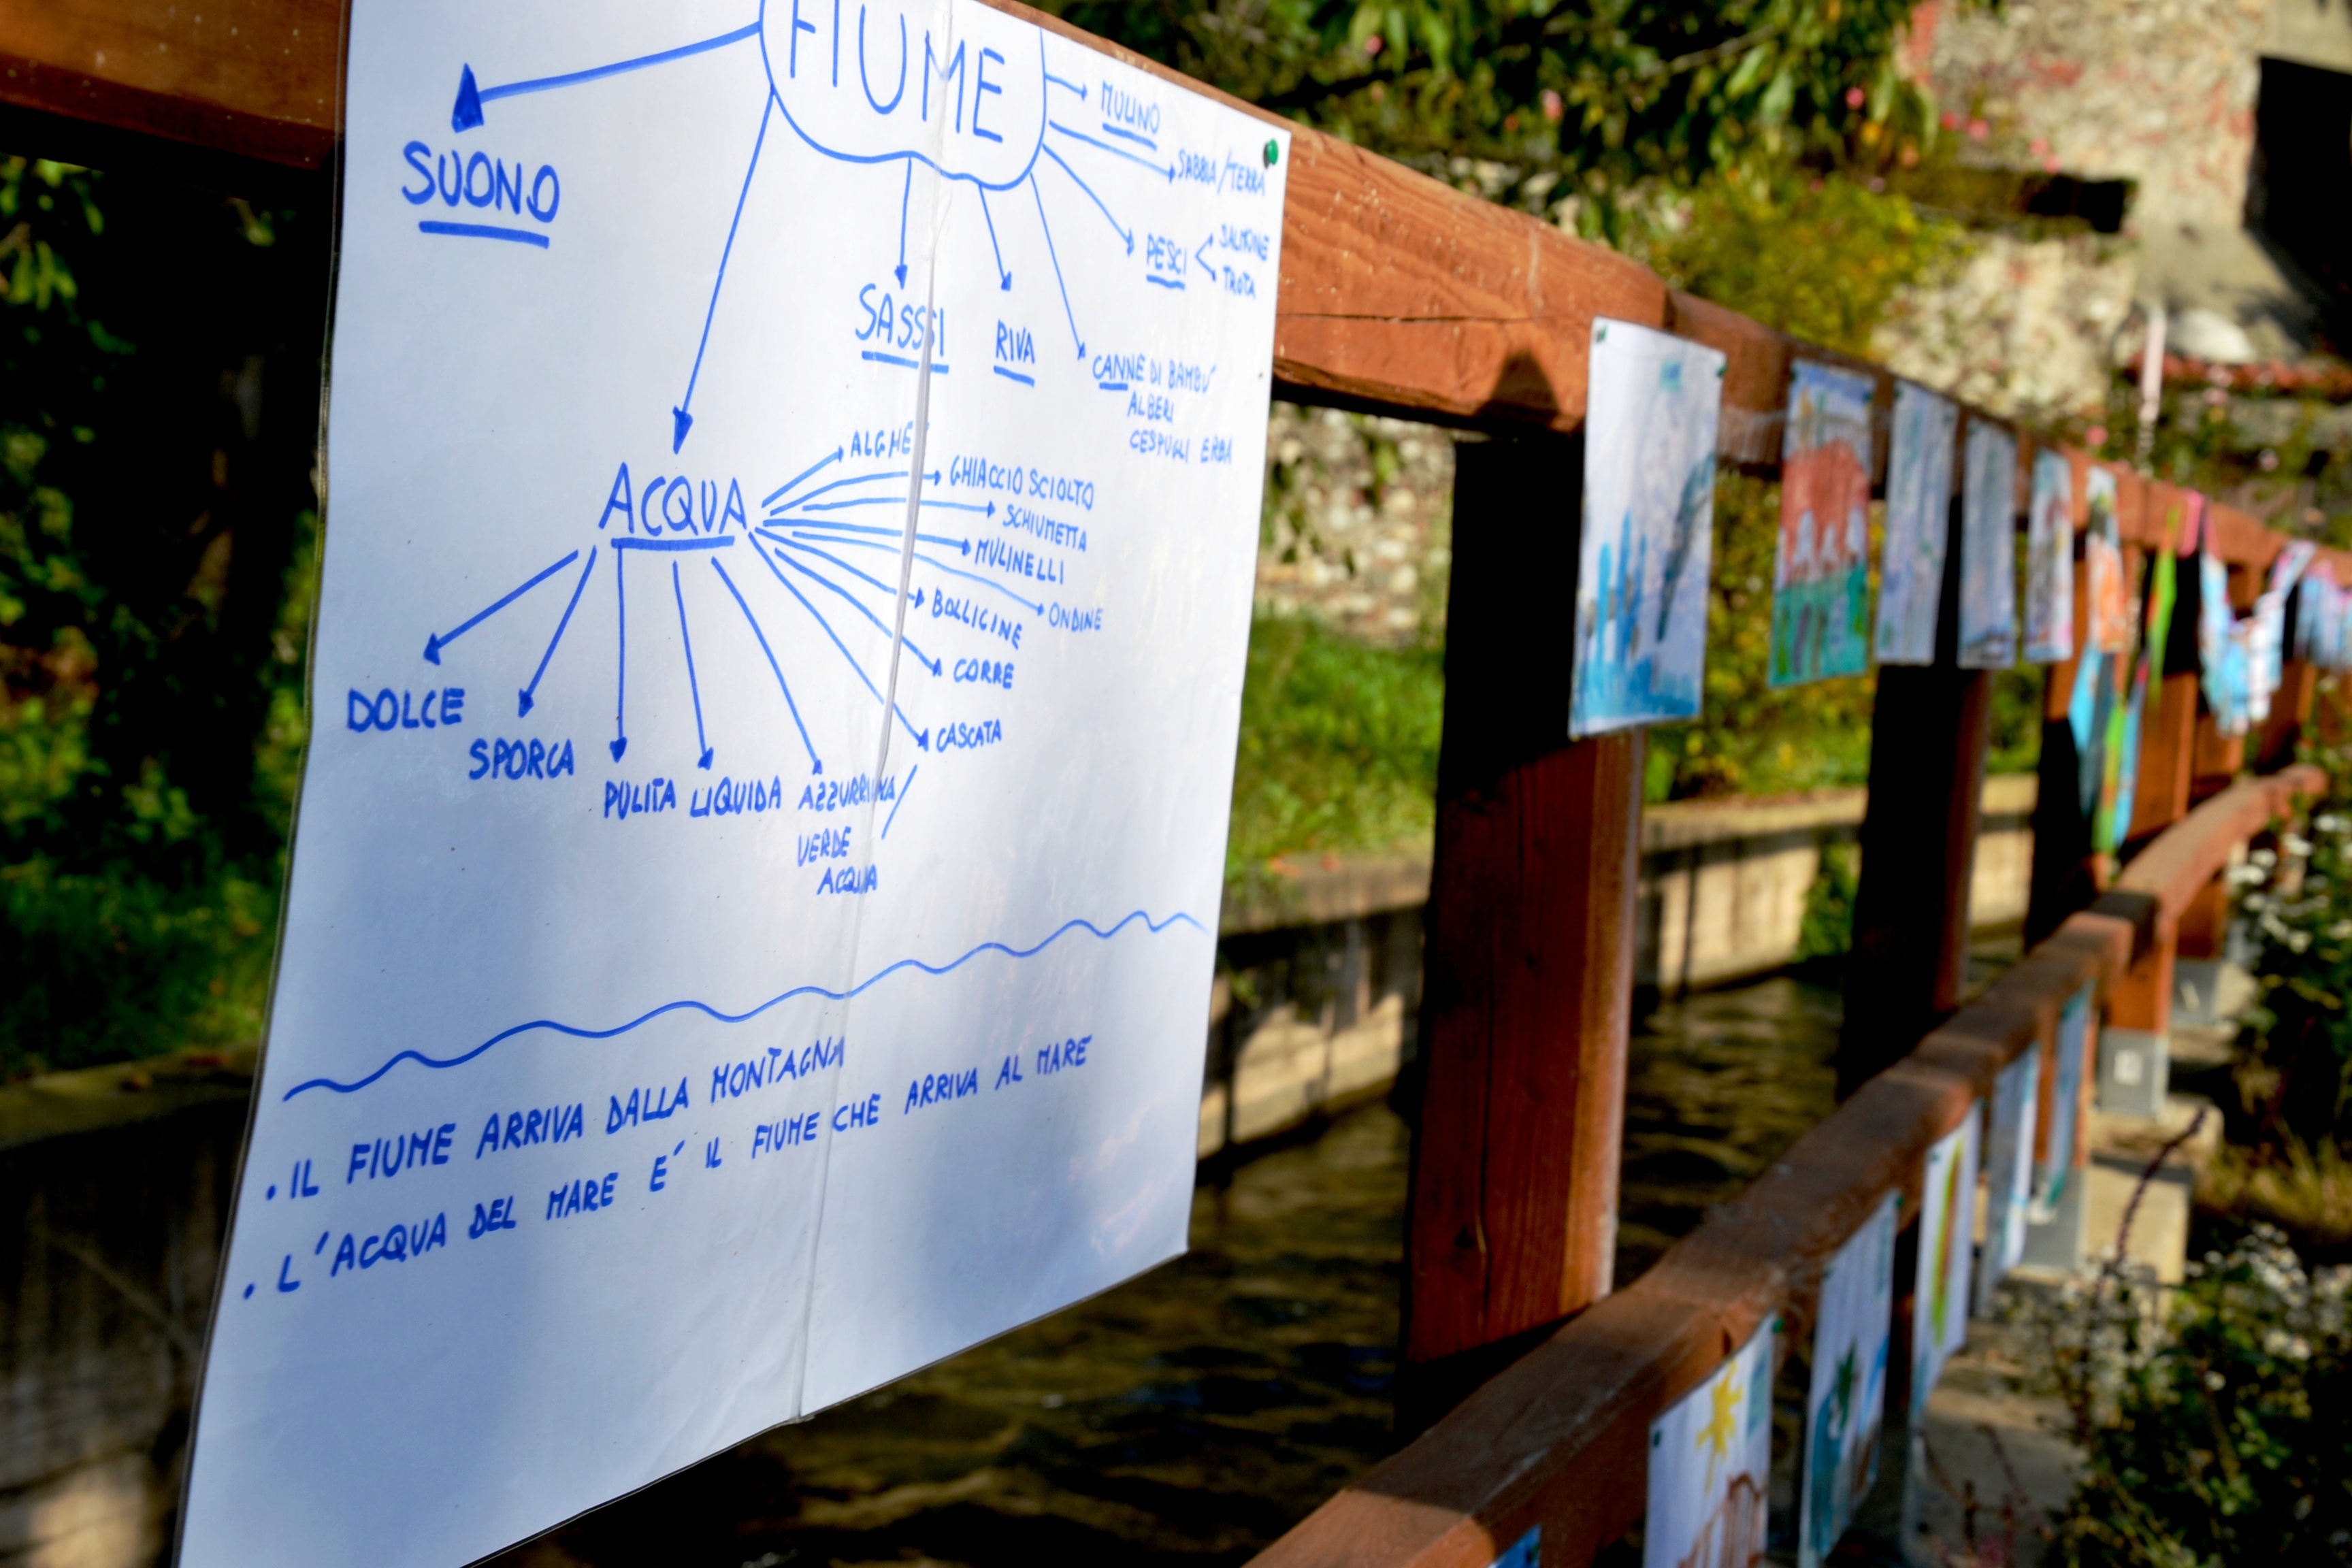 FIUME
SUONO
MULINO
SABBIA/TERRA
PESCI
SALMONE
TROTA
SASSI
RIVA
CANNE DI BAMBU'
ALBERI
CESPUGLI ERBA
ACQUA
ALGHE
GHIACCIO SCIOLTO
SCHIUMETTA
MULINELLI
ONDINE
BOLLICINE
CORRE
CASCATA
DOLCE
SPORCA
PULITA
LIQUIDA
AZZURRINA
VERDE
ACQUA
• IL FIUME ARRIVA DALLA MONTAGNA
• L'ACQUA DEL MARE E' IL FIUME CHE ARRIVA AL MARE